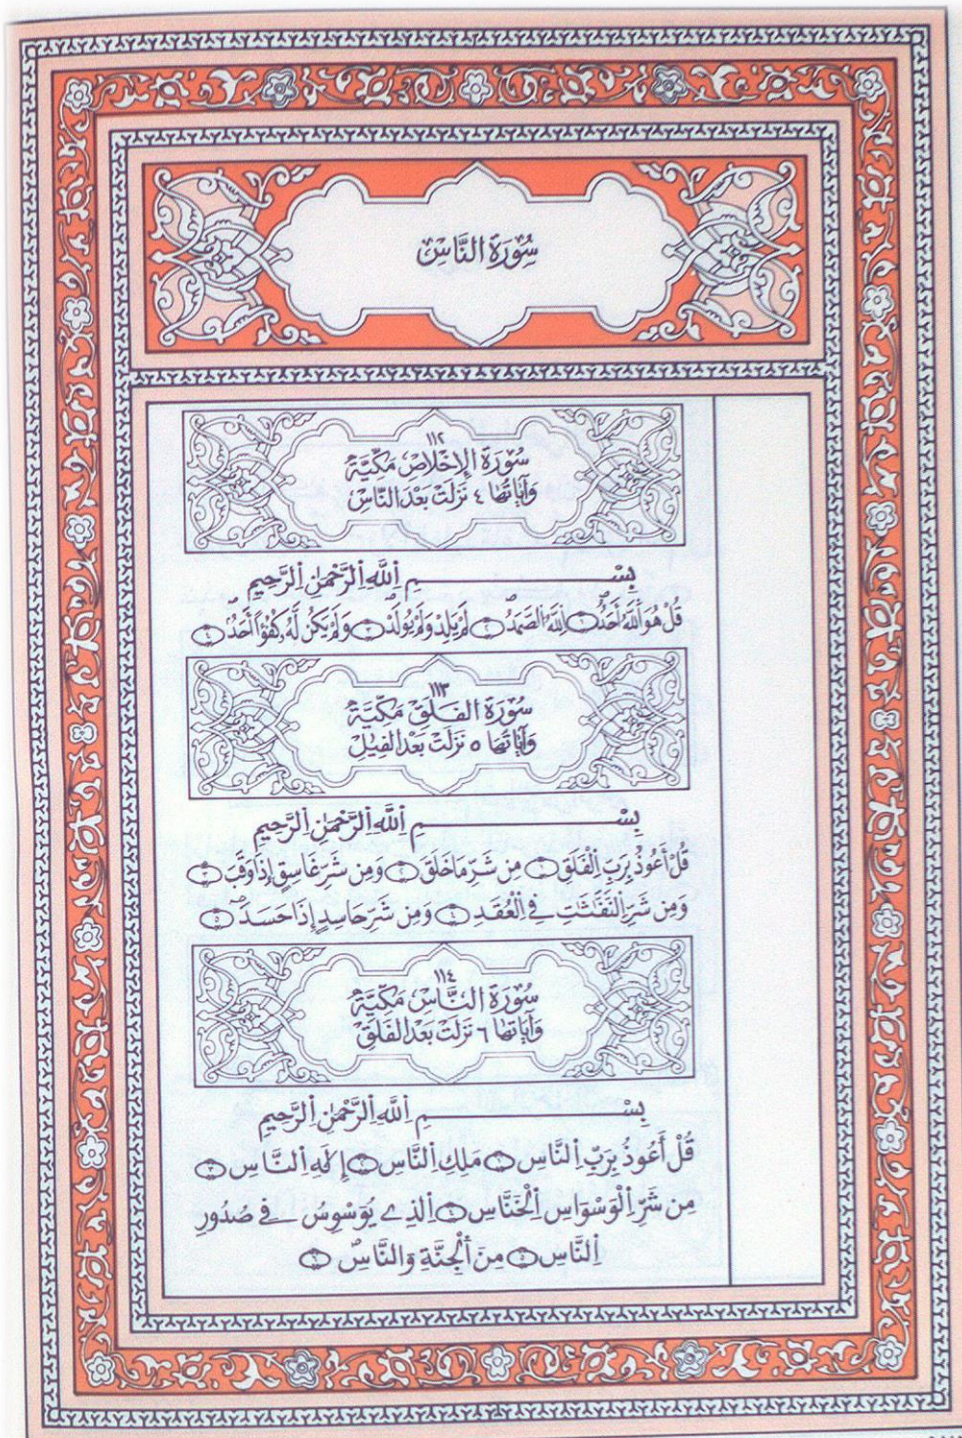 سُورَة النَّاسْ
١١٢
سُورَة الإِخْلَاصْ مَكِّيَّة
وَآيَاتُهَا ٤ نَزَلَتْ بَعْدَ النَّاسْ
بِسْمِ اِللَّهِ اِلرَّحْمَٰنِ اِلرَّحِيمِ
قُلْ هُوَ اَللَّهُ أَحَدٌ ١ اِللَّهُ اُلصَّمَدُ ٢ لَمْ يَلِدْ وَلَمْ يُولَدْ ٣ وَلَمْ يَكُن لَّهُۥ كُفُؤًا أَحَدٌ ٤
١١٣
سُورَة الفَلَقْ مَكِّيَّة
وَآيَاتُهَا ٥ نَزَلَتْ بَعْدَ الفِيلْ
بِسْمِ اِللَّهِ اِلرَّحْمَٰنِ اِلرَّحِيمِ
قُلْ أَعُوذُ بِرَبِّ اِلْفَلَقِ ١ مِن شَرِّ مَا خَلَقَ ٢ وَمِن شَرِّ غَاسِقٍ إِذَا وَقَبَ ٣
وَمِن شَرِّ اِلنَّفَّٰثَٰتِ فِے اِلْعُقَدِ ٤ وَمِن شَرِّ حَاسِدٍ إِذَا حَسَدَ ٥
١١٤
سُورَة النَّاسْ مَكِّيَّة
وَآيَاتُهَا ٦ نَزَلَتْ بَعْدَ الفَلَقْ
بِسْمِ اِللَّهِ اِلرَّحْمَٰنِ اِلرَّحِيمِ
قُلْ أَعُوذُ بِرَبِّ اِلنَّاسِ ١ مَلِكِ اِلنَّاسِ ٢ إِلَٰهِ اِلنَّاسِ ٣
مِن شَرِّ اِلْوَسْوَاسِ اِلْخَنَّاسِ ٤ اِلذِے يُوَسْوِسُ فِے صُدُورِ
اِلنَّاسِ ٥ مِنَ اَلْجِنَّةِ وَالنَّاسِ ٦